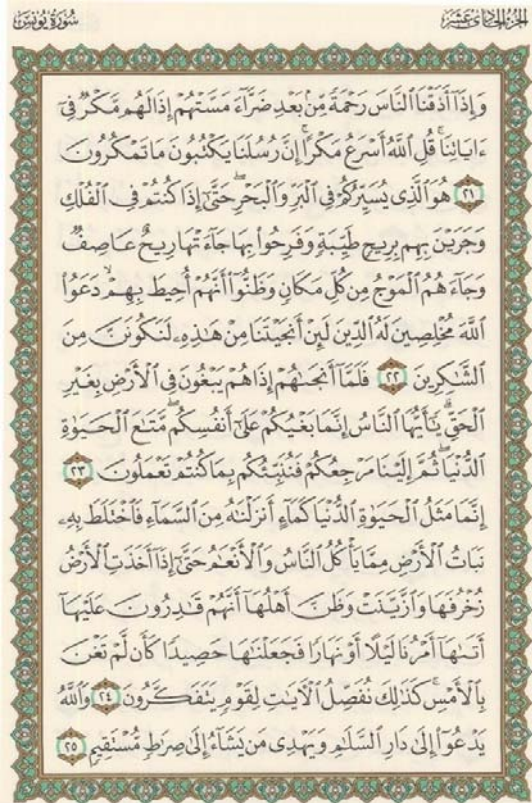 الجزء الحادى عشر
سورة يونس
وَإِذَآ أَذَقْنَا ٱلنَّاسَ رَحْمَةً مِّنۢ بَعْدِ ضَرَّآءَ مَسَّتْهُمْ إِذَا لَهُم مَّكْرٌ فِىٓ
ءَايَاتِنَا ۚ قُلِ ٱللَّهُ أَسْرَعُ مَكْرًا ۚ إِنَّ رُسُلَنَا يَكْتُبُونَ مَا تَمْكُرُونَ
٢١ هُوَ ٱلَّذِى يُسَيِّرُكُمْ فِى ٱلْبَرِّ وَٱلْبَحْرِ ۖ حَتَّىٰٓ إِذَا كُنتُمْ فِى ٱلْفُلْكِ
وَجَرَيْنَ بِهِم بِرِيحٍ طَيِّبَةٍ وَفَرِحُوا۟ بِهَا جَآءَتْهَا رِيحٌ عَاصِفٌ
وَجَآءَهُمُ ٱلْمَوْجُ مِن كُلِّ مَكَانٍ وَظَنُّوٓا۟ أَنَّهُمْ أُحِيطَ بِهِمْ ۙ دَعَوُا۟
ٱللَّهَ مُخْلِصِينَ لَهُ ٱلدِّينَ لَئِنْ أَنجَيْتَنَا مِنْ هَٰذِهِۦ لَنَكُونَنَّ مِنَ
ٱلشَّٰكِرِينَ ٢٢ فَلَمَّآ أَنجَىٰهُمْ إِذَا هُمْ يَبْغُونَ فِى ٱلْأَرْضِ بِغَيْرِ
ٱلْحَقِّ ۗ يَٰٓأَيُّهَا ٱلنَّاسُ إِنَّمَا بَغْيُكُمْ عَلَىٰٓ أَنفُسِكُم ۖ مَّتَٰعَ ٱلْحَيَوٰةِ
ٱلدُّنْيَا ۖ ثُمَّ إِلَيْنَا مَرْجِعُكُمْ فَنُنَبِّئُكُم بِمَا كُنتُمْ تَعْمَلُونَ ٢٣
إِنَّمَا مَثَلُ ٱلْحَيَوٰةِ ٱلدُّنْيَا كَمَآءٍ أَنزَلْنَٰهُ مِنَ ٱلسَّمَآءِ فَٱخْتَلَطَ بِهِۦ
نَبَاتُ ٱلْأَرْضِ مِمَّا يَأْكُلُ ٱلنَّاسُ وَٱلْأَنْعَٰمُ حَتَّىٰٓ إِذَآ أَخَذَتِ ٱلْأَرْضُ
زُخْرُفَهَا وَٱزَّيَّنَتْ وَظَنَّ أَهْلُهَآ أَنَّهُمْ قَٰدِرُونَ عَلَيْهَآ
أَتَىٰهَآ أَمْرُنَا لَيْلًا أَوْ نَهَارًا فَجَعَلْنَٰهَا حَصِيدًا كَأَن لَّمْ تَغْنَ
بِٱلْأَمْسِ ۚ كَذَٰلِكَ نُفَصِّلُ ٱلْءَايَٰتِ لِقَوْمٍ يَتَفَكَّرُونَ ٢٤ وَٱللَّهُ
يَدْعُوٓا۟ إِلَىٰ دَارِ ٱلسَّلَٰمِ وَيَهْدِى مَن يَشَآءُ إِلَىٰ صِرَٰطٍ مُّسْتَقِيمٍ ٢٥